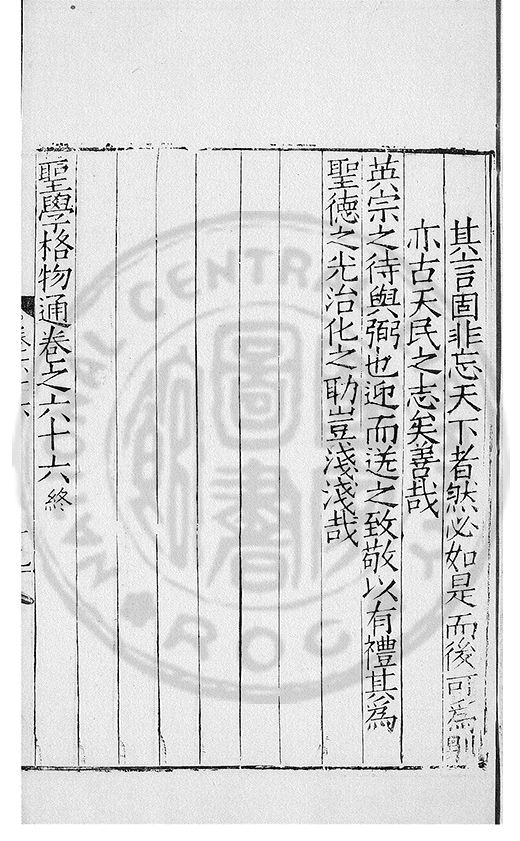 其言固非忘天下者然必如是而後可為
亦古天民之志矣善哉
英宗之待與弼也迎而送之致敬以有禮其為
聖德之光治化之助豈淺淺哉
聖學格物通卷之六十六終
卷六十六
NATIONAL CENTRAL LIBRARY
R.O.C.